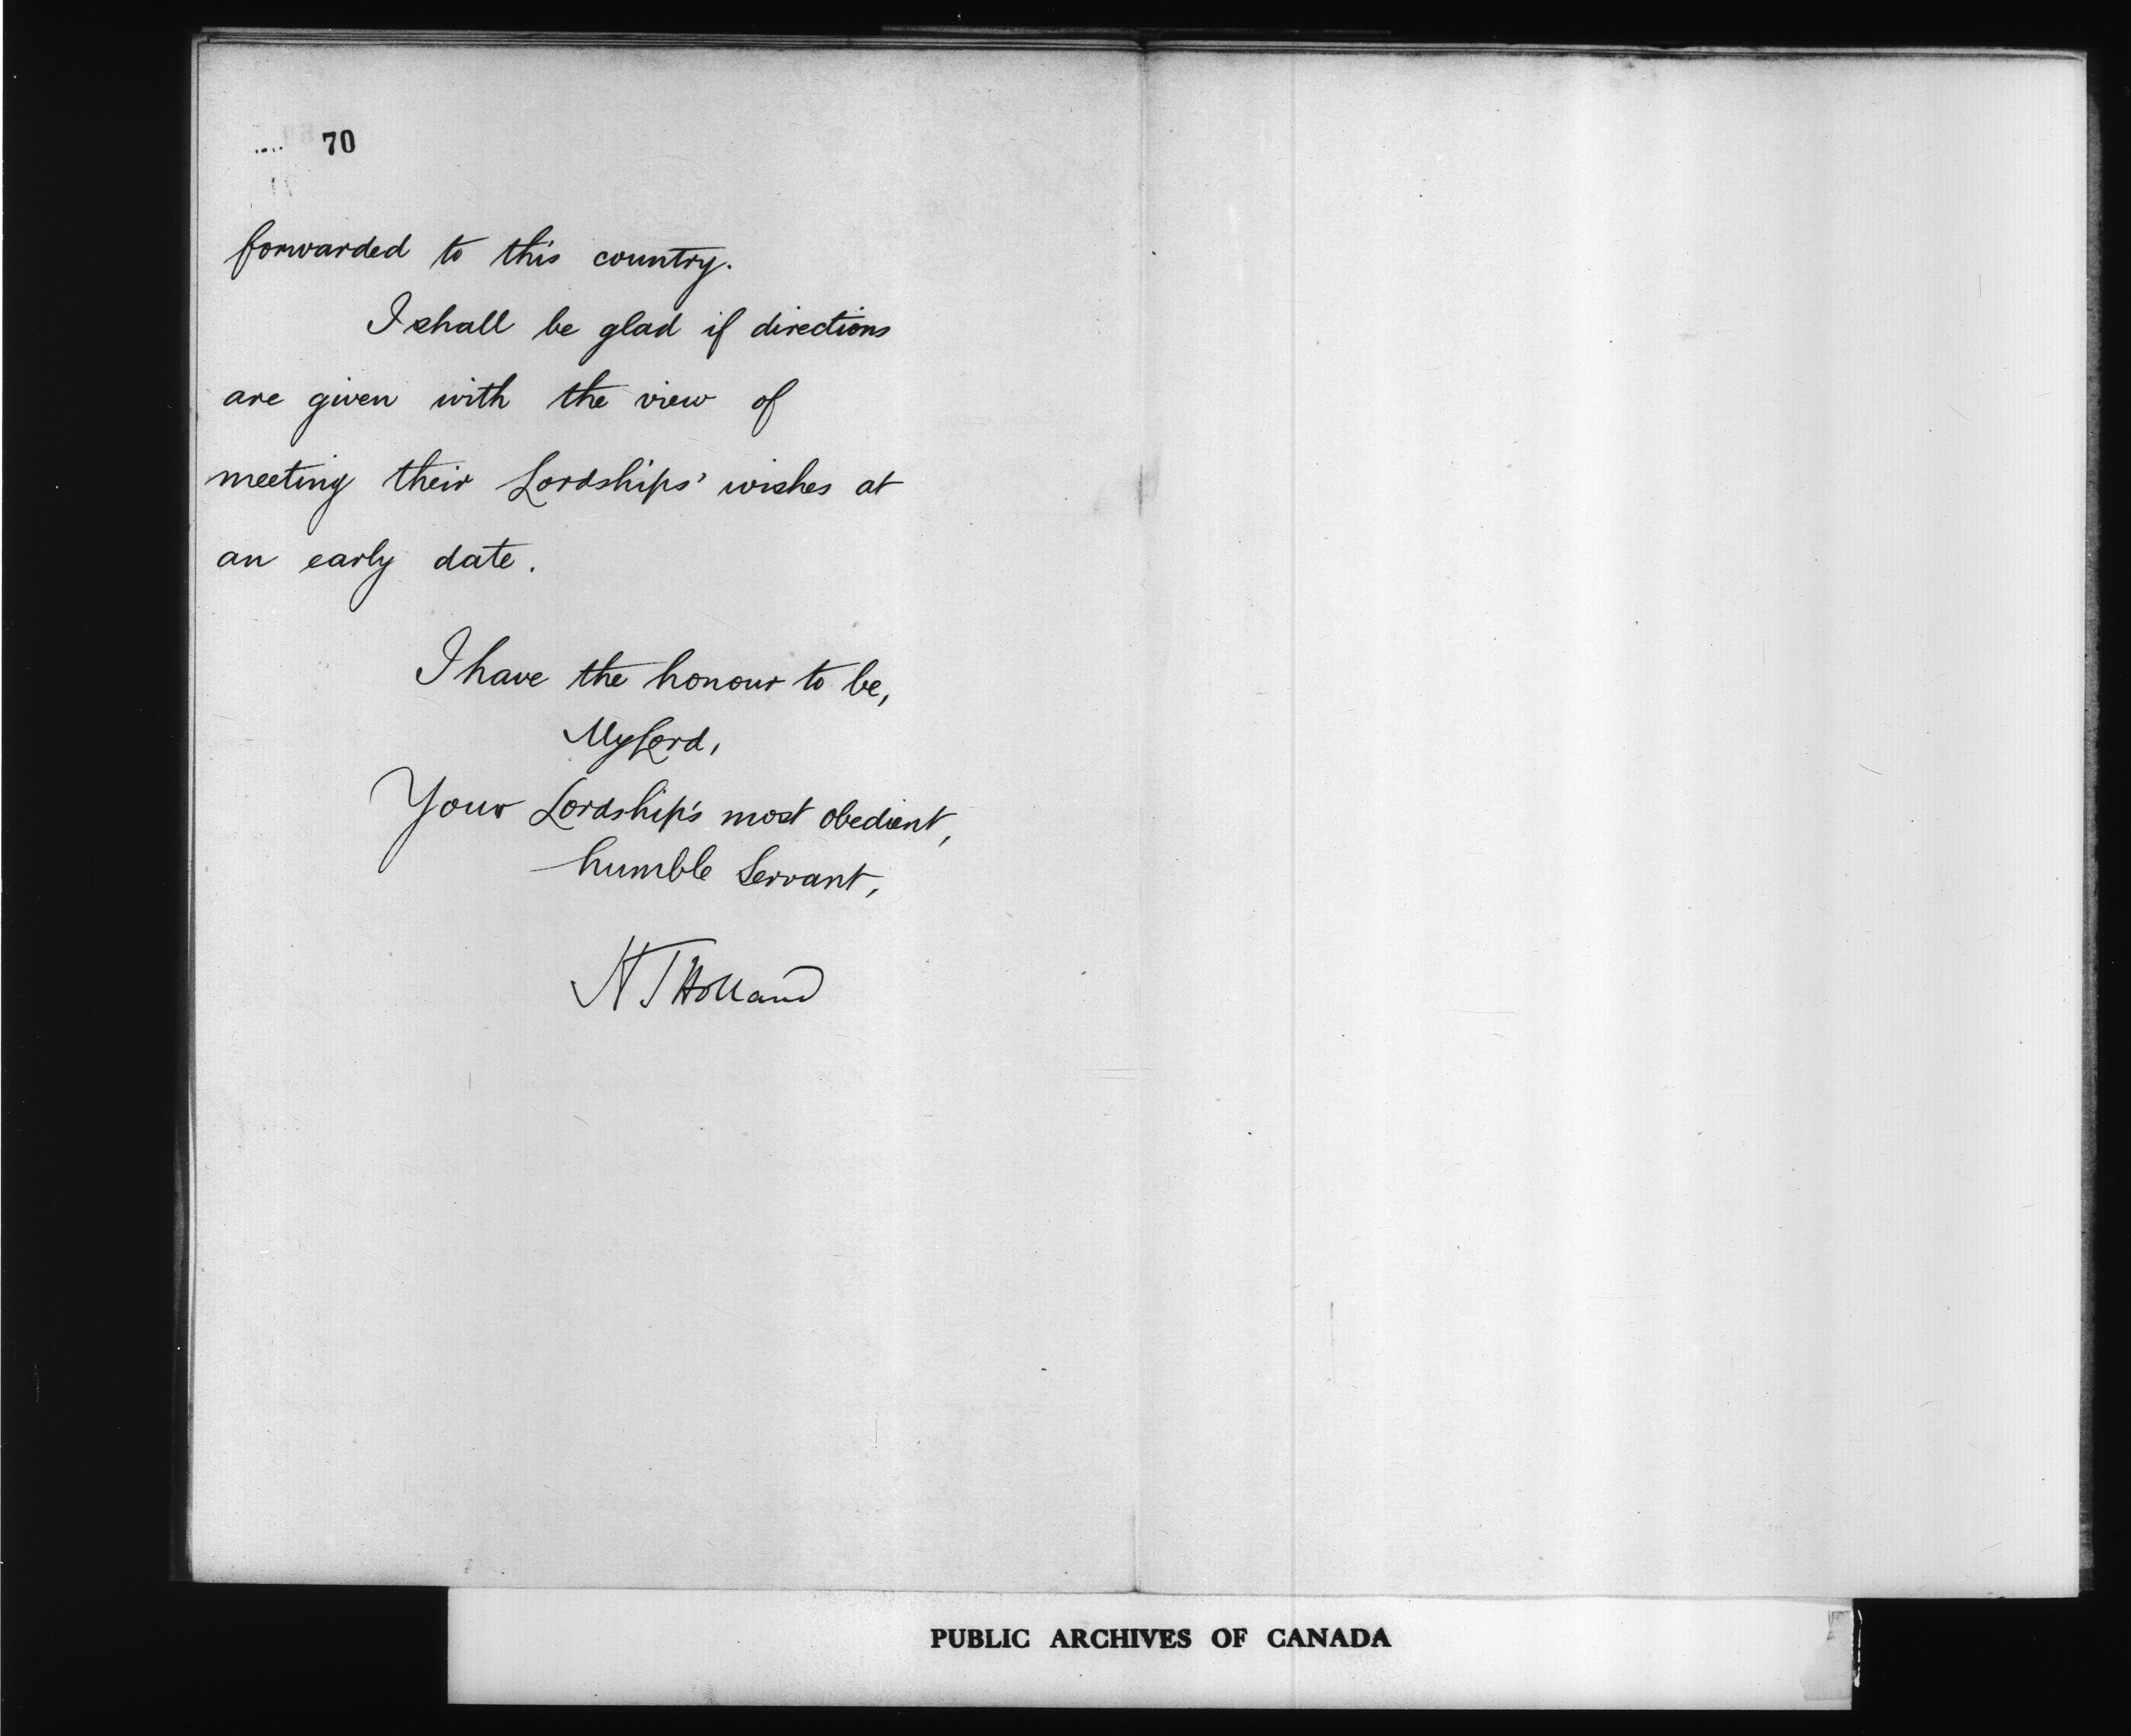 70
forwarded to this country.
I shall be glad if directions
are given with the view of
meeting their Lordships' wishes at
an early date.
I have the honour to be,
My Lord,
Your Lordship's most obedient,
humble Servant,
H T Holland
PUBLIC ARCHIVES OF CANADA